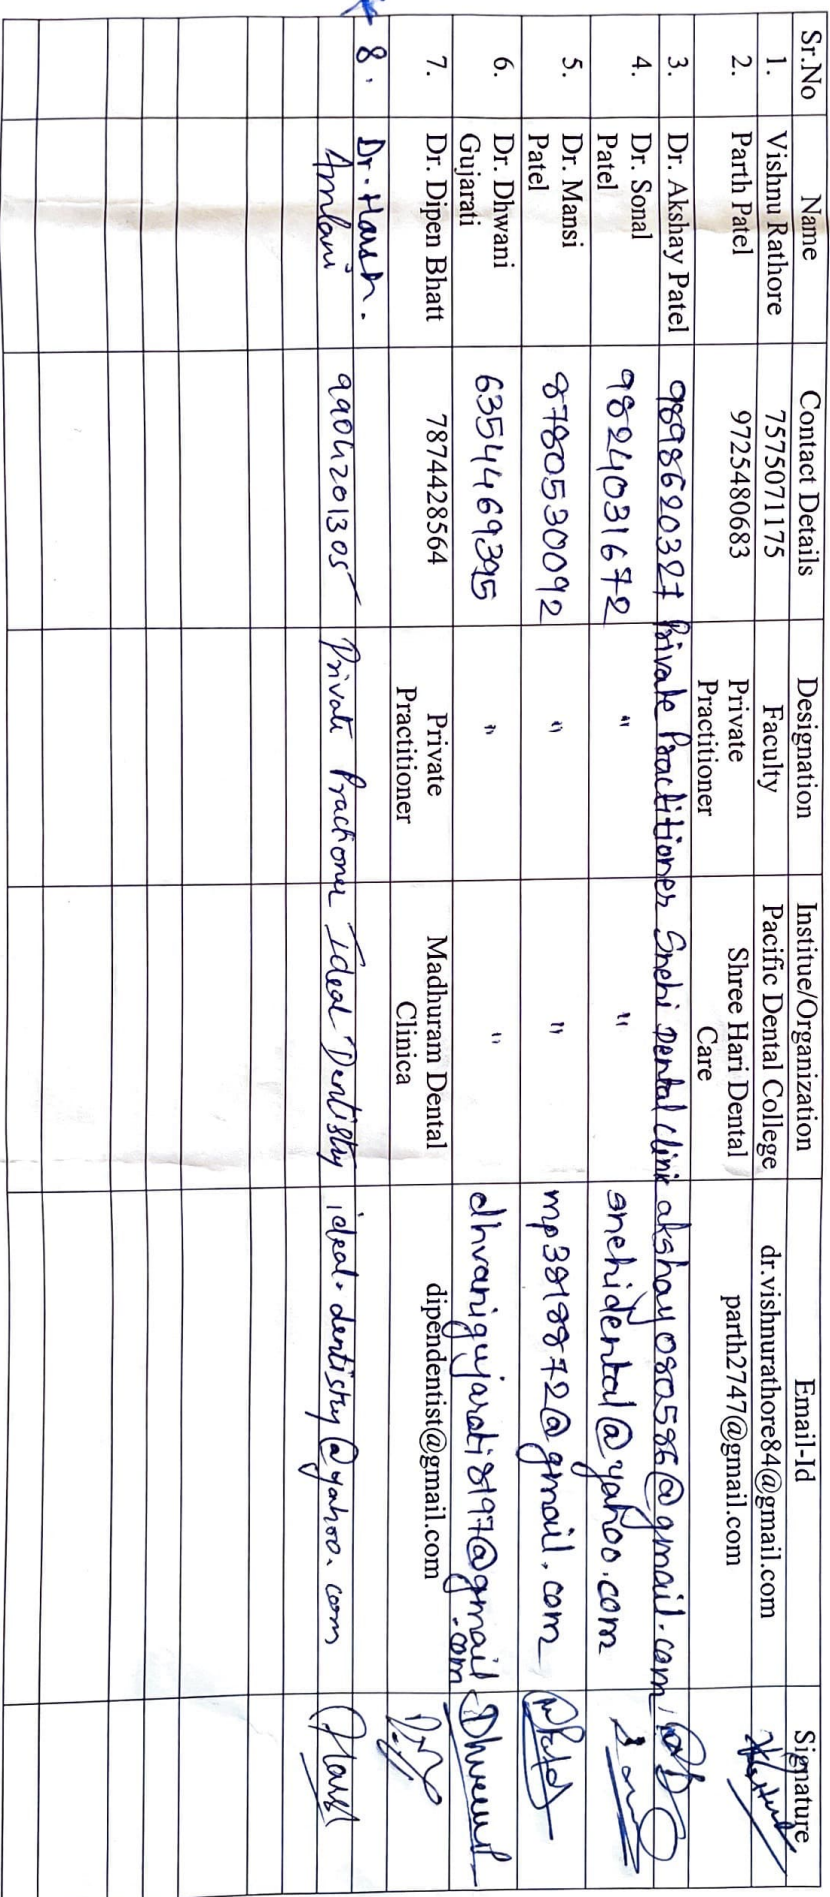 Sr.No Name Contact Details Designation Institue/Organization Email-Id Signature
1. Vishnu Rathore 7575071175 Faculty Pacific Dental College dr.vishnurathore84@gmail.com
2. Parth Patel 9725480683 Private Shree Hari Dental parth2747@gmail.com
Practitioner Care
3. Dr. Akshay Patel 9898620327 Private Practitioner Snehi Dental clinik akshay080586@gmail.com
4. Dr. Sonal 9824031672 " " snehidental@yahoo.com
Patel
5. Dr. Mansi 8780530092 " " mp3818872@gmail.com
Patel
6. Dr. Dhwani 6354469395 " " dhvanigujarati8197@gmail
Gujarati .com
7. Dr. Dipen Bhatt 7874428564 Private Madhuram Dental dipendentist@gmail.com
Practitioner Clinica
8. Dr. Harsh.
Amlani 9904201305 Private Practioner Ideal Dentistry ideal.dentistry@yahoo.com Harsh